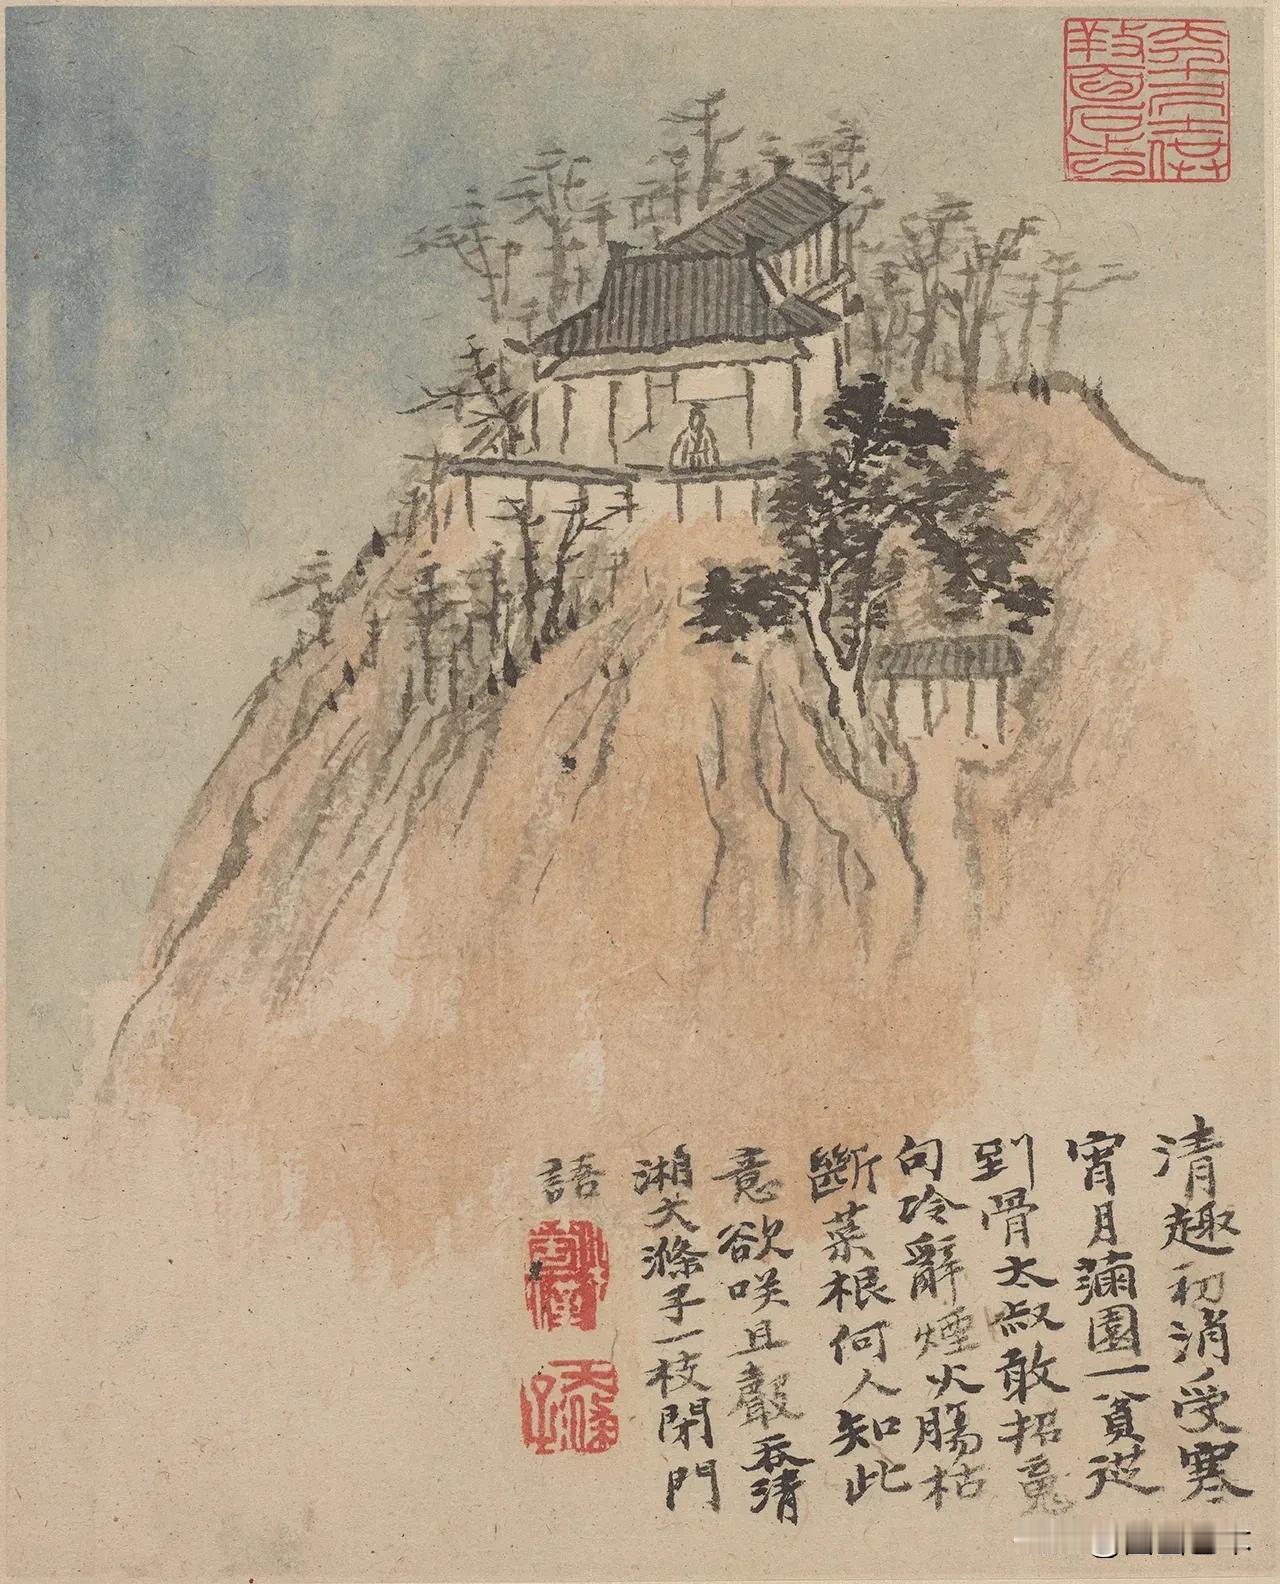 清趣初消受寒
宵月滿園一貧從
到骨太叔敢招䰟
句冷辭煙火腸枯
斷菜根何人知此
意欲咲且聲吞清
湘大滌子一枝閉門
語
大滌子